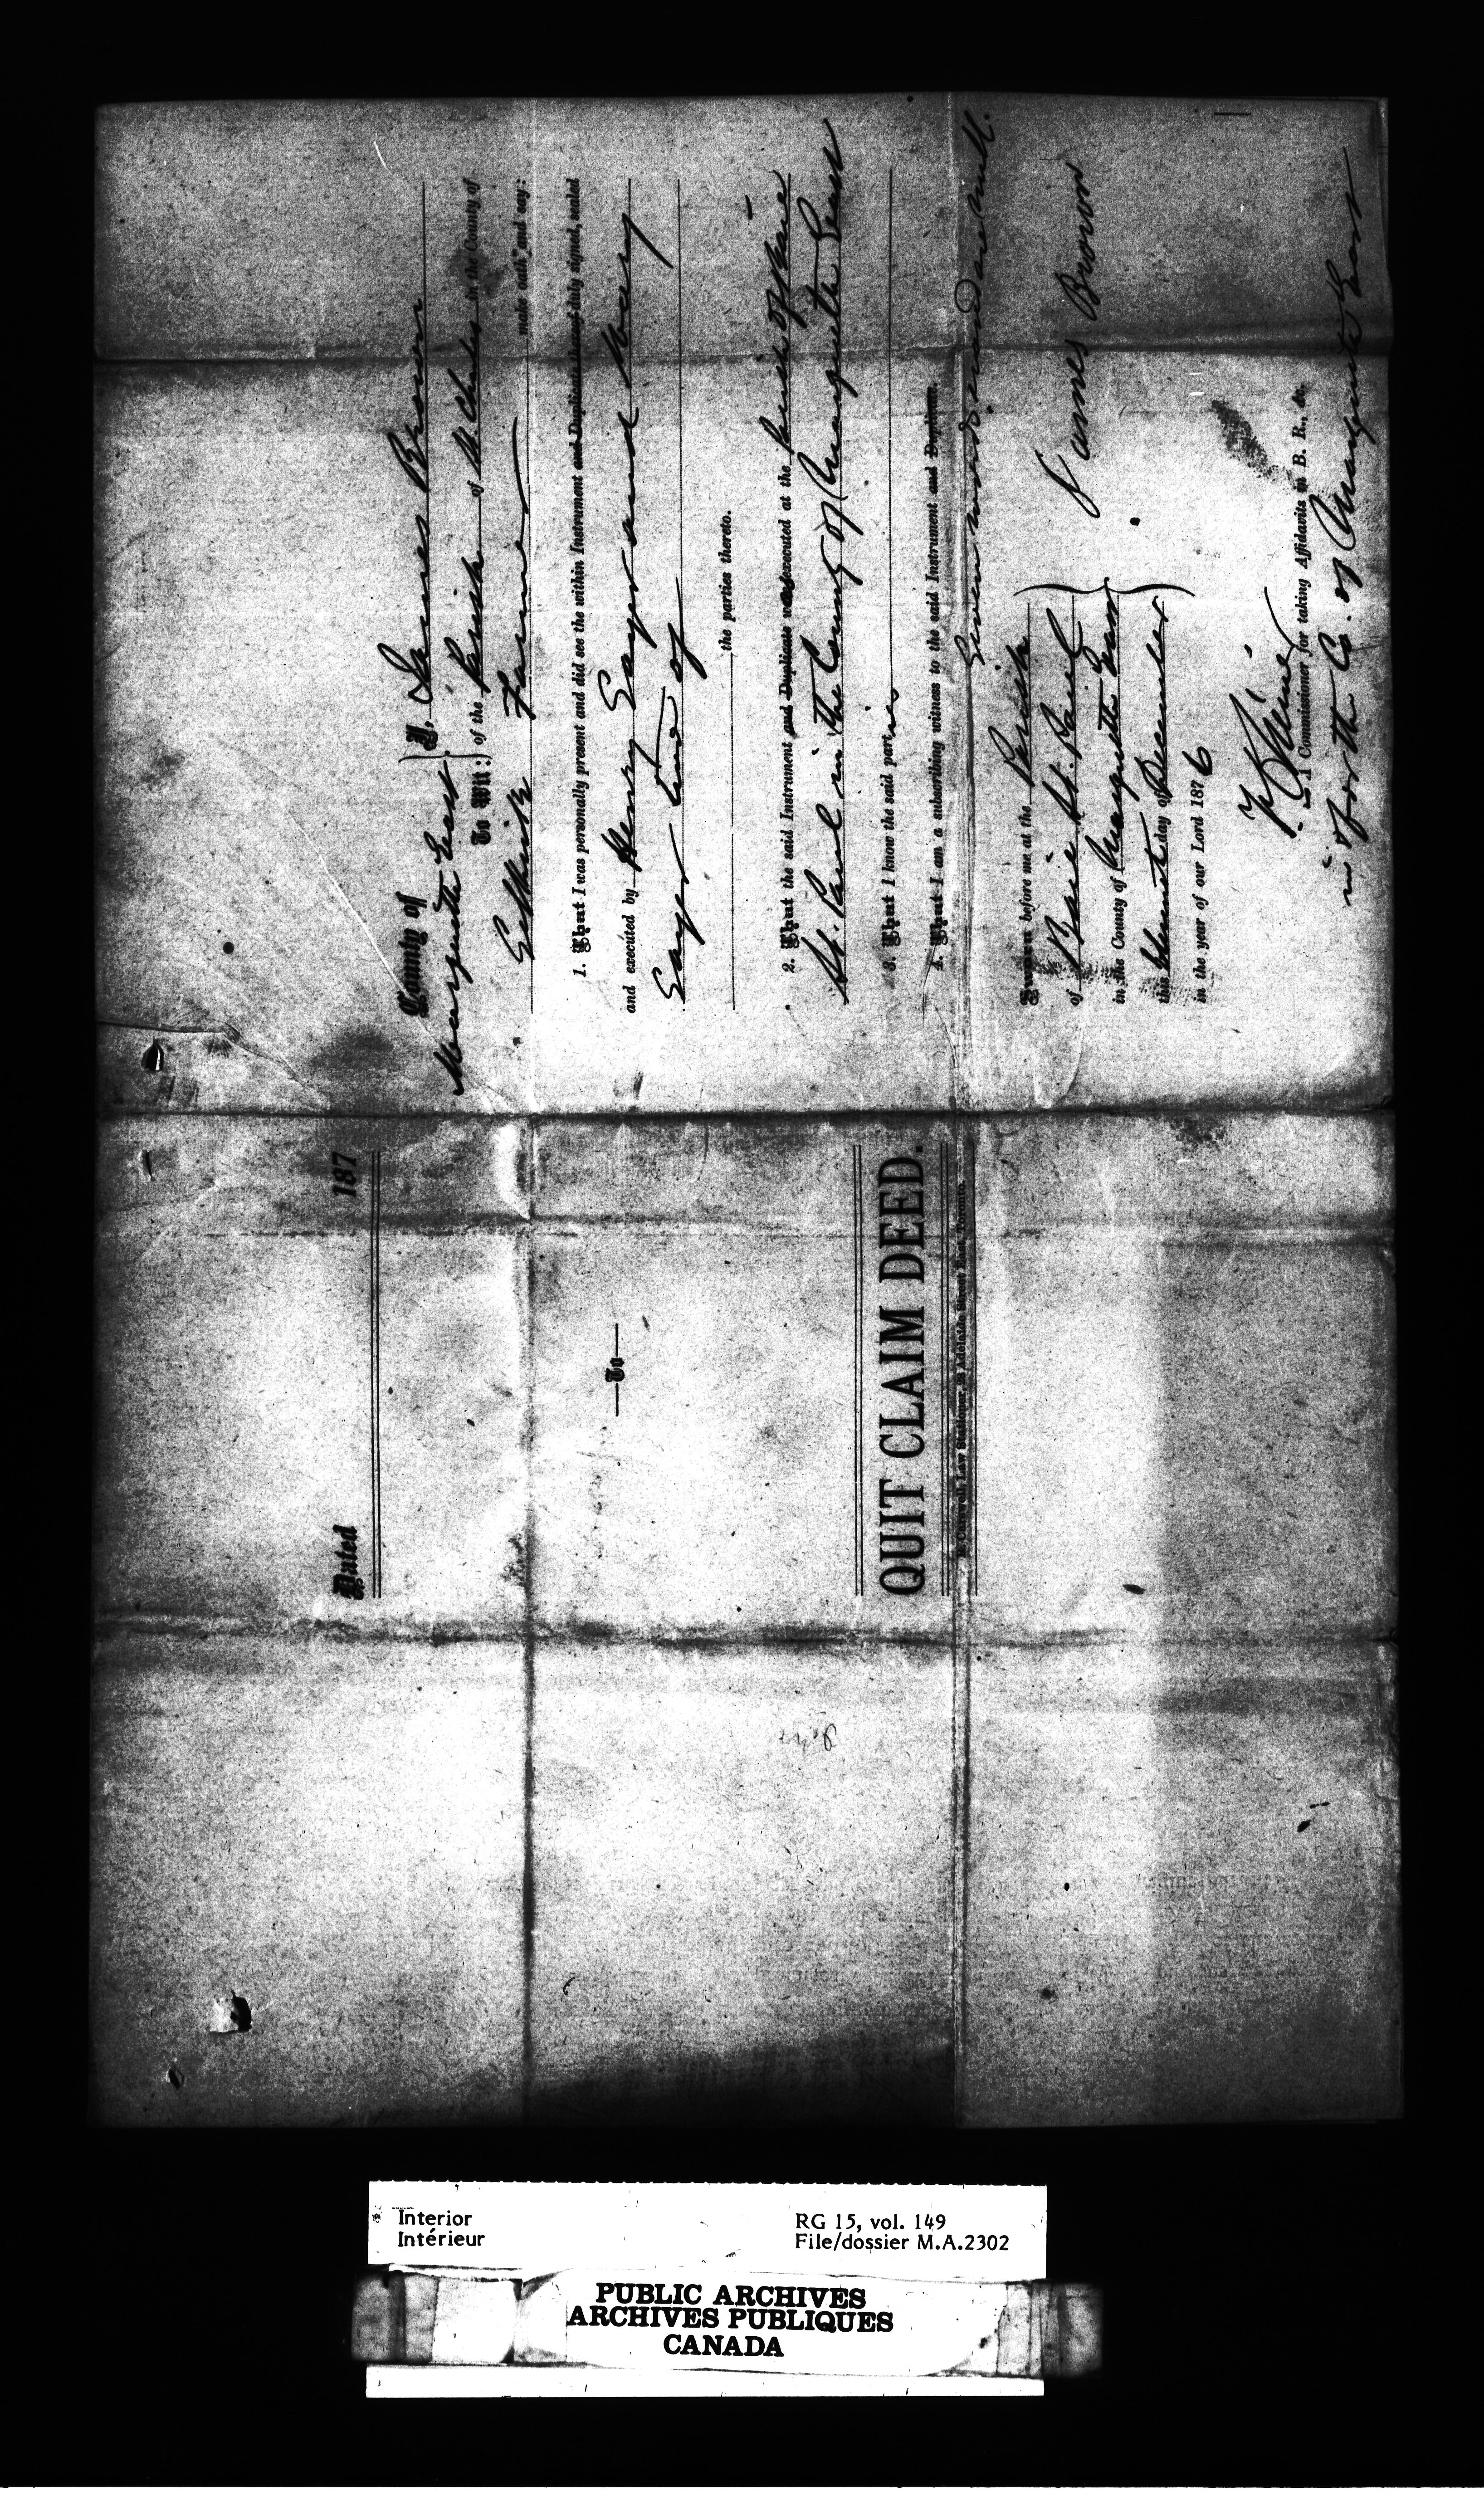 County of
Marquette East
To Wit:
I, James Brown
of the Parish of St. Charles in the County of
Selkirk Farmer make oath and say:
1. That I was personally present and did see the within Instrument and Duplicate thereof duly signed, sealed
and executed by Henry Sayer and Mary
Sayer two of
the parties thereto.
2. That the said Instrument and Duplicate were executed at the Parish of Baie
St. Paul in the County of Marquette East
3. That I know the said parties
4. That I am a subscribing witness to the said Instrument and Duplicate.
Seven words erased are null.
Sworn before me at the Parish
of Baie St. Paul
in the County of Marquette East
this day of December
in the year of our Lord 1876
James Brown
A Commissioner for taking Affidavits in B. R., &c.
in & for the Co. of Marquette East
Dated 187
To
QUIT CLAIM DEED.
Law Stationer, Adelaide Street East, Toronto.
Interior
Intérieur
RG 15, vol. 149
File/dossier M.A.2302
PUBLIC ARCHIVES
ARCHIVES PUBLIQUES
CANADA